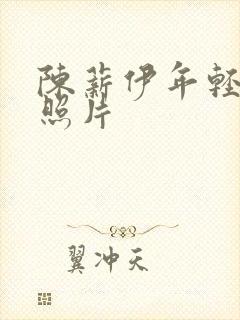 陳薪伊年輕
照片
翼冲天